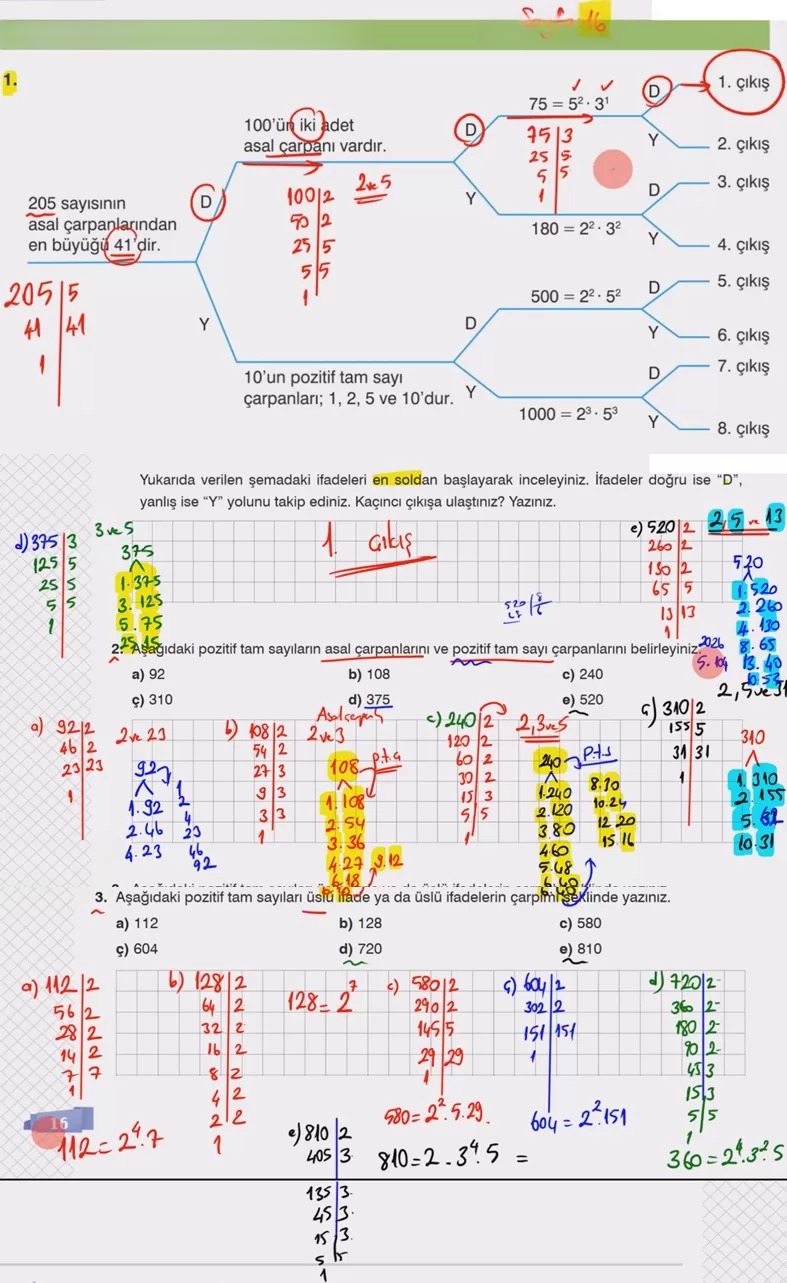 Sayfa 16
1.
205 sayısının
asal çarpanlarından
en büyüğü 41'dir.
D
Y
205 5
41 41
1
100'ün iki adet
asal çarpanı vardır.
100 2
50 2
25 5
5 5
1
2 ve 5
D
Y
10'un pozitif tam sayı
çarpanları; 1, 2, 5 ve 10'dur.
D
Y
75 = 5² · 3¹
75 3
25 5
5 5
1
180 = 2² · 3²
500 = 2² · 5²
1000 = 2³ · 5³
D
1. çıkış
Y
2. çıkış
D
3. çıkış
Y
4. çıkış
D
5. çıkış
Y
6. çıkış
D
7. çıkış
Y
8. çıkış
Yukarıda verilen şemadaki ifadeleri en soldan başlayarak inceleyiniz. İfadeler doğru ise “D”,
yanlış ise “Y” yolunu takip ediniz. Kaçıncı çıkışa ulaştınız? Yazınız.
1. Çıkış
d) 375 3
125 5
25 5
5 5
1
3 ve 5
375
1.375
3.125
5.75
25.15
e) 520 2
260 2
130 2
65 5
13 13
1
2,5 ve 13
520
1.520
2.260
4.130
8.65
5.104 13.40
2026
2. Aşağıdaki pozitif tam sayıların asal çarpanlarını ve pozitif tam sayı çarpanlarını belirleyiniz.
a) 92
b) 108
c) 240
ç) 310
d) 375
e) 520
a) 92 2
46 2
23 23
1
2 ve 23
92
1.92
2.46
4.23
1
2
4
23
46
92
b) 108 2
54 2
27 3
9 3
3 3
1
Asal çarpanı
2 ve 3
108 p.t.ç
1.108
2.54
3.36
4.27 9.12
6.18
c) 240 2
120 2
60 2
30 2
15 3
5 5
1
2,3 ve 5
240 p.t.s
1.240
2.120
3.80
4.60
5.48
6.40
8.30
10.24
12.20
15.16
ç) 310 2
155 5
31 31
1
2,5 ve 31
310
1.310
2.155
5.62
10.31
3. Aşağıdaki pozitif tam sayıları üslü ifade ya da üslü ifadelerin çarpımı şeklinde yazınız.
a) 112
b) 128
c) 580
ç) 604
d) 720
e) 810
a) 112 2
56 2
28 2
14 2
7 7
1
112 = 2⁴.7
b) 128 2
64 2
32 2
16 2
8 2
4 2
2 2
1
128 = 2⁷
c) 580 2
290 2
145 5
29 29
1
580 = 2².5.29.
ç) 604 2
302 2
151 151
1
604 = 2².151
d) 720 2
360 2
180 2
90 2
45 3
15 3
5 5
1
360 = 2⁴.3².5
16
e) 810 2
405 3
135 3
45 3
15 3
5 5
1
810 = 2.3⁴.5 =